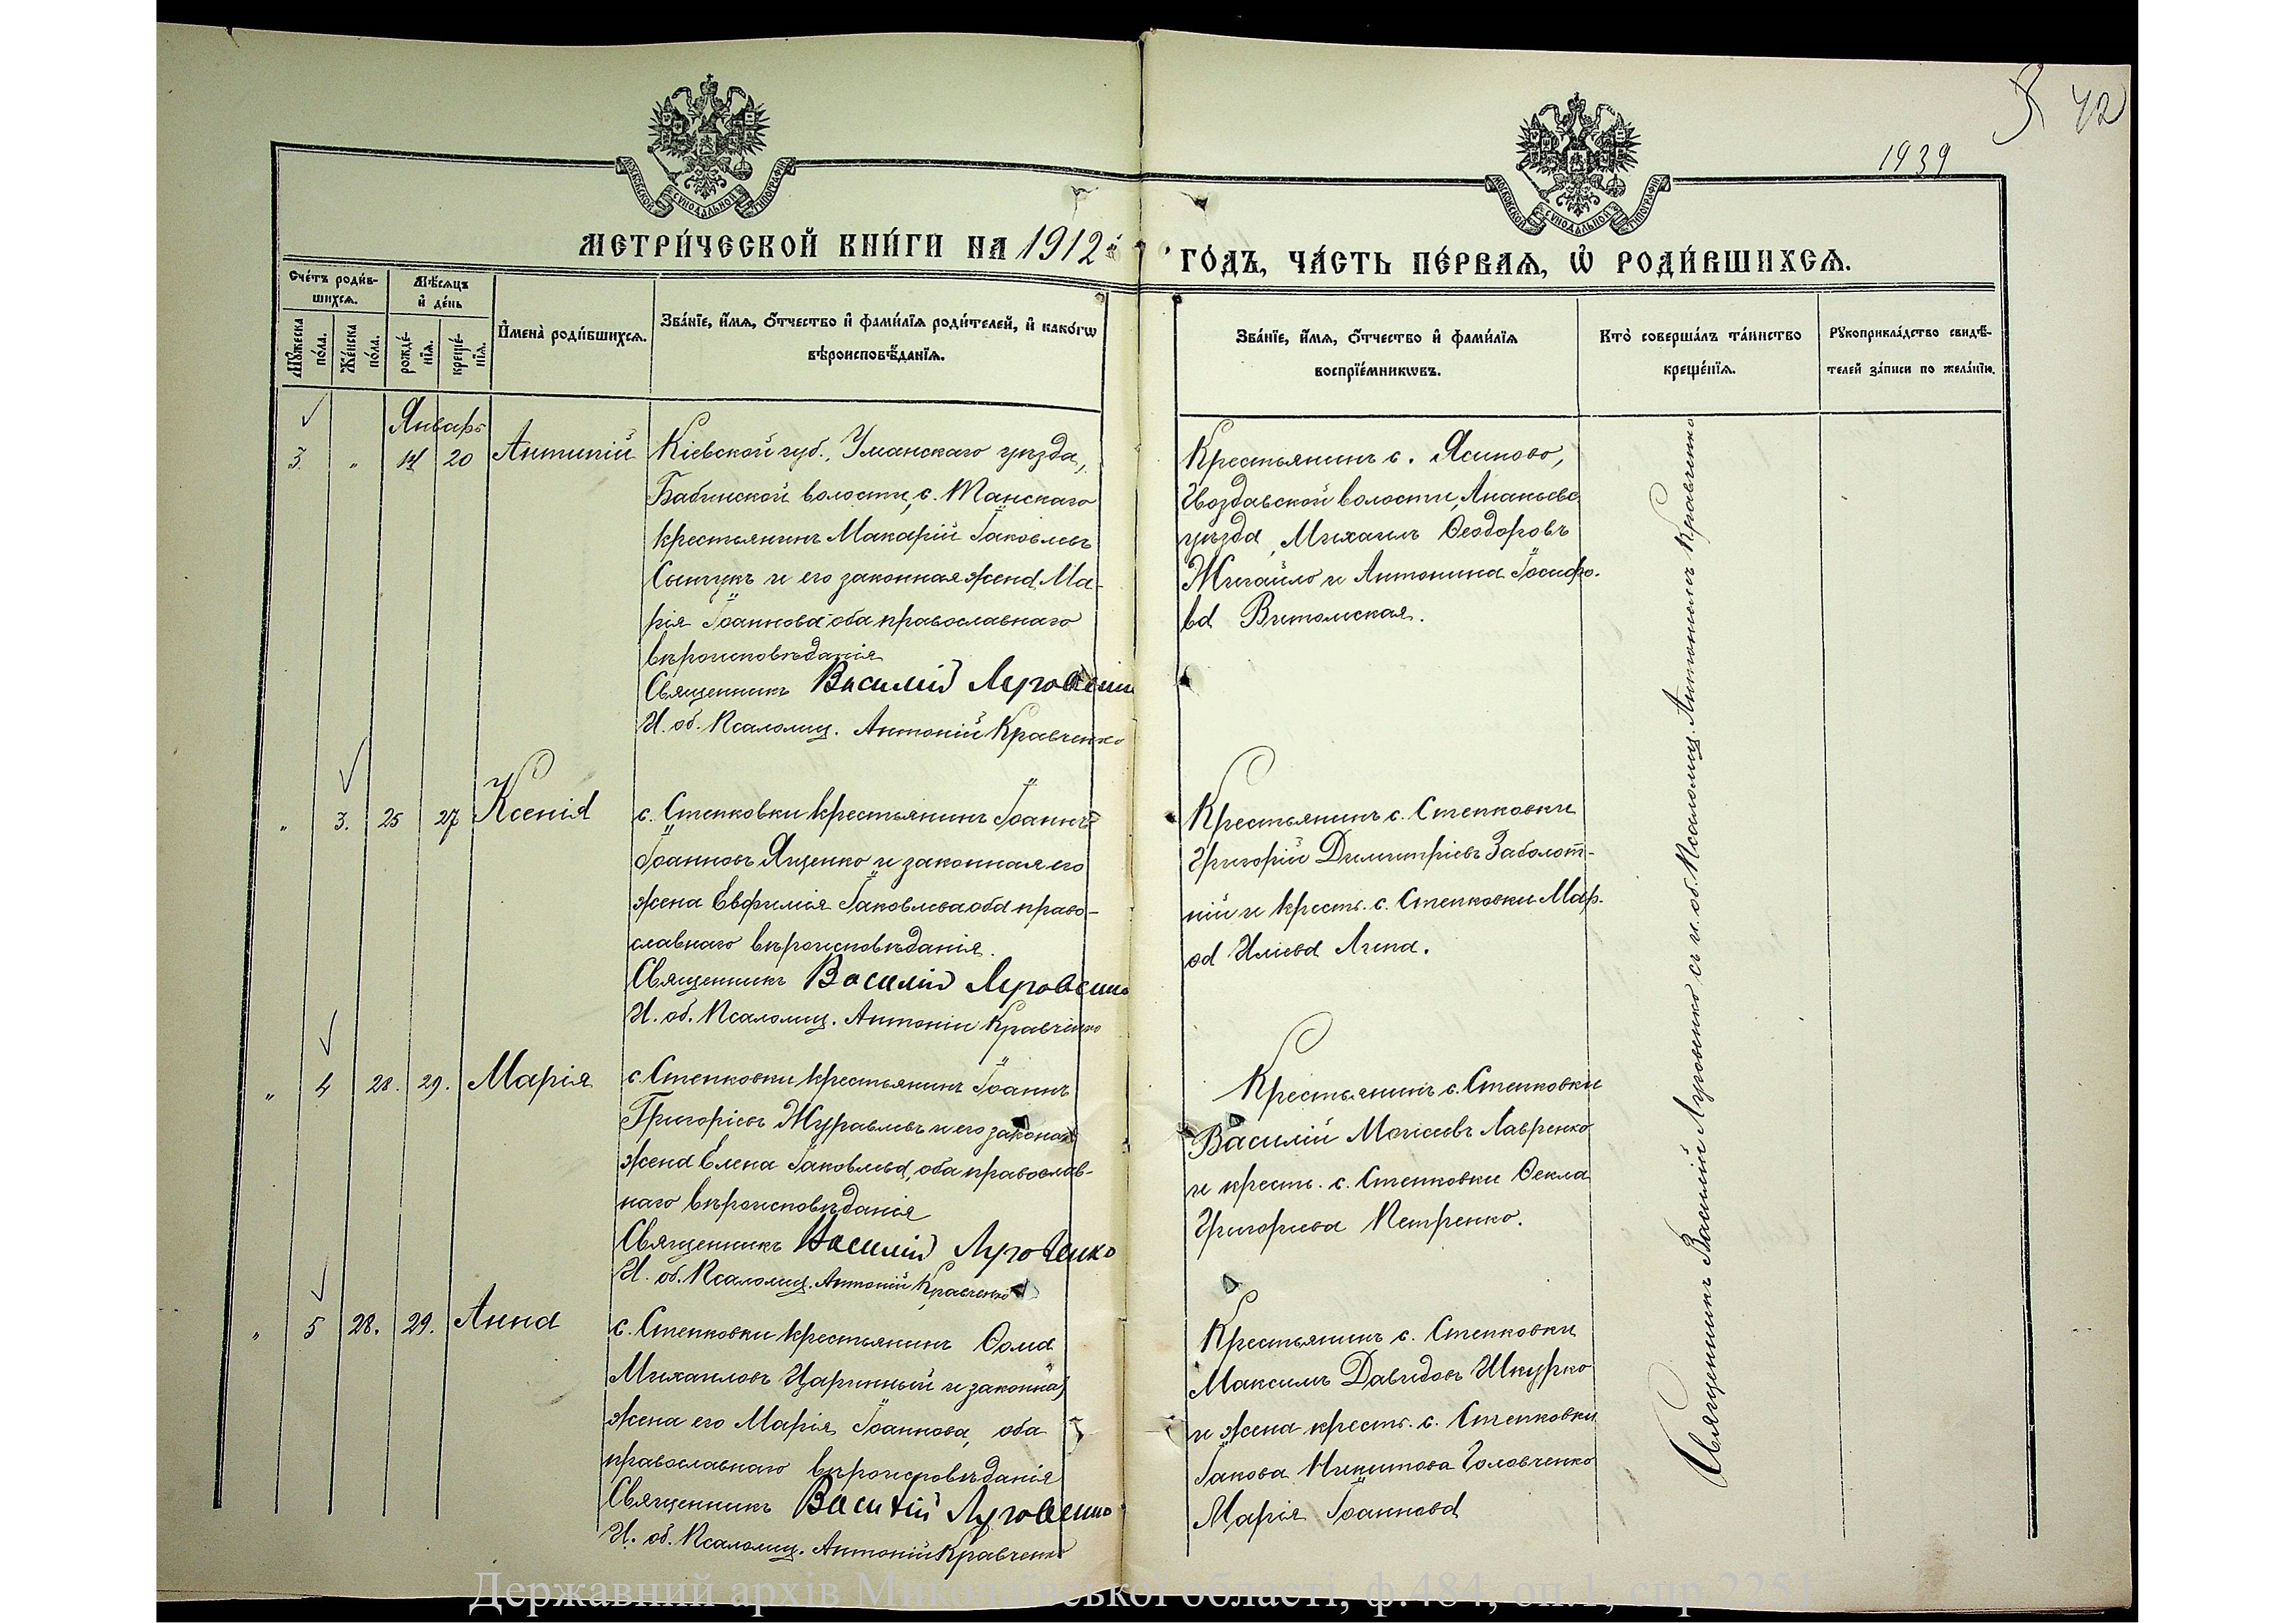 42
1939
МОСКОВСКОЙ СУНОДАЛЬНОЙ ТИПОГРАФІИ
МОСКОВСКОЙ СУНОДАЛЬНОЙ ТИПОГРАФІИ
МЕТРИ́ЧЕСКОЙ КНИ́ГИ НА 1912 й
ГО́ДЪ, ЧА́СТЬ ПЕ́РВАЯ, Ѡ҆ РОДИ́ВШИХСЯ.
Сче́тъ роди́в-
шихся.
Мѣ́сяцъ
и҆ де́нь
Мꙋ́жеска по́ла.
Же́нска по́ла.
рожде́-нїя.
креще́-нїя.
И҆мена̀ роди́вшихся.
Зва́нїе, и҆́мя, ѻ҆́тчество и҆ фами́лїя роди́телей, и҆ како́гѡ
вѣроисповѣ́данїя.
Зва́нїе, и҆́мя, ѻ҆́тчество и҆ фами́лїя
воспрїе́мникѡвъ.
Кто̀ соверша́лъ та́инство
креще́нїя.
Рꙋкоприкла́дство свидѣ́-
телей за́писи по жела́нїю.
Январь
3. " 14 20 Антипій
Кіевской губ., Уманскаго уѣзда,
Бабинской волости, с. Танскаго
крестьянинъ Макарій Іаковлевъ
и его законная жена Ма-
рія Іоаннова оба православнаго
вѣроисповѣданія
Священникъ Василій Луговенко
И. об. Псаломщ. Антоній Кравченко
Крестьянинъ с. Ясиново,
Гвоздавской волости, Ананьевс
уѣзда, Михаилъ Ѳеодоровъ
Жигайло и Антонина Іосифо-
ва Витомская.
" 3. 25 27 Ксенія
с. Степковки крестьянинъ Іоаннъ
Іоанновъ Яценко и законная его
жена Евфимія Іаковлева оба право-
славнаго вѣроисповѣданія.
Священникъ Василій Луговенко
И. об. Псаломщ. Антоній Кравченко
Крестьянинъ с. Степковки
Григорій Димитріевъ Заболот-
ній и крест. с. Степковки Мар-
Иліева Липа.
" 4 28. 29. Марія
с. Степковки крестьянинъ Іоаннъ
Григоріевъ Журавлевъ и его законая
жена Елена Іаковлева, оба православ-
наго вѣроисповѣданія
Священникъ Василій Луговенко
И. об. Псаломщ. Антоній Кравченко
Крестьянинъ с. Степковки
Василій Моисеевъ Лавренко
и крест. с. Степковки Ѳекла
Григориева Петренко.
" 5 28. 29. Анна
с. Степковки крестьянинъ Ѳома
Михаиловъ Царинный и законная
жена его Марія Іоаннова, оба
православнаго вѣроисповѣданія
Священникъ Василій Луговенко
И. об. Псаломщ. Антоній Кравченко
Крестьянинъ с. Степковки
Максимъ Давидовъ Шкурко
и жена крест. с. Степковки
Іакова Никитова Головченко
Марія Іоаннова
Священникъ Василій Луговенко съ и. об. Псаломщ. Антониемъ Кравченко
Державний архів Миколаївської області, ф.484, оп.1, спр.2251